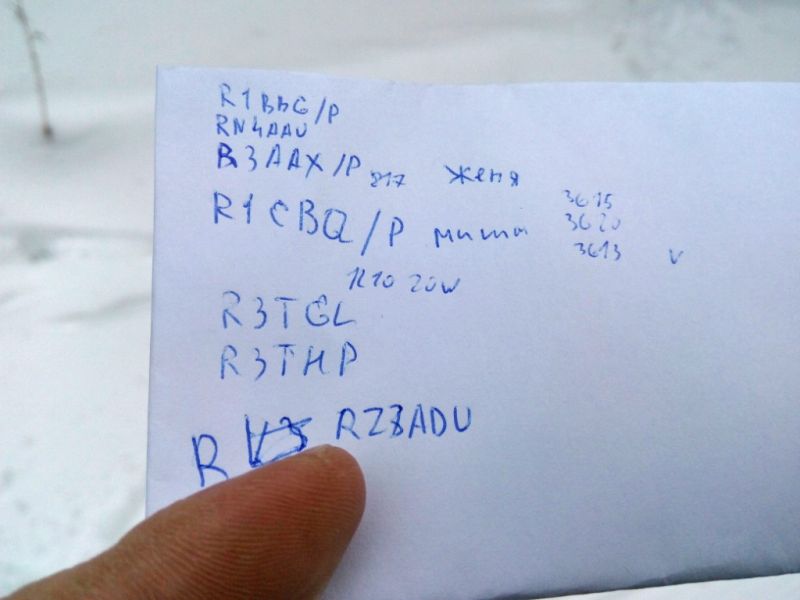 RN4AAU
R3AAX/P 817 Женя
R1CBQ/P миша 3615
3620
3613 V
20W
R3TGL
R3THP
R RZ3ADU